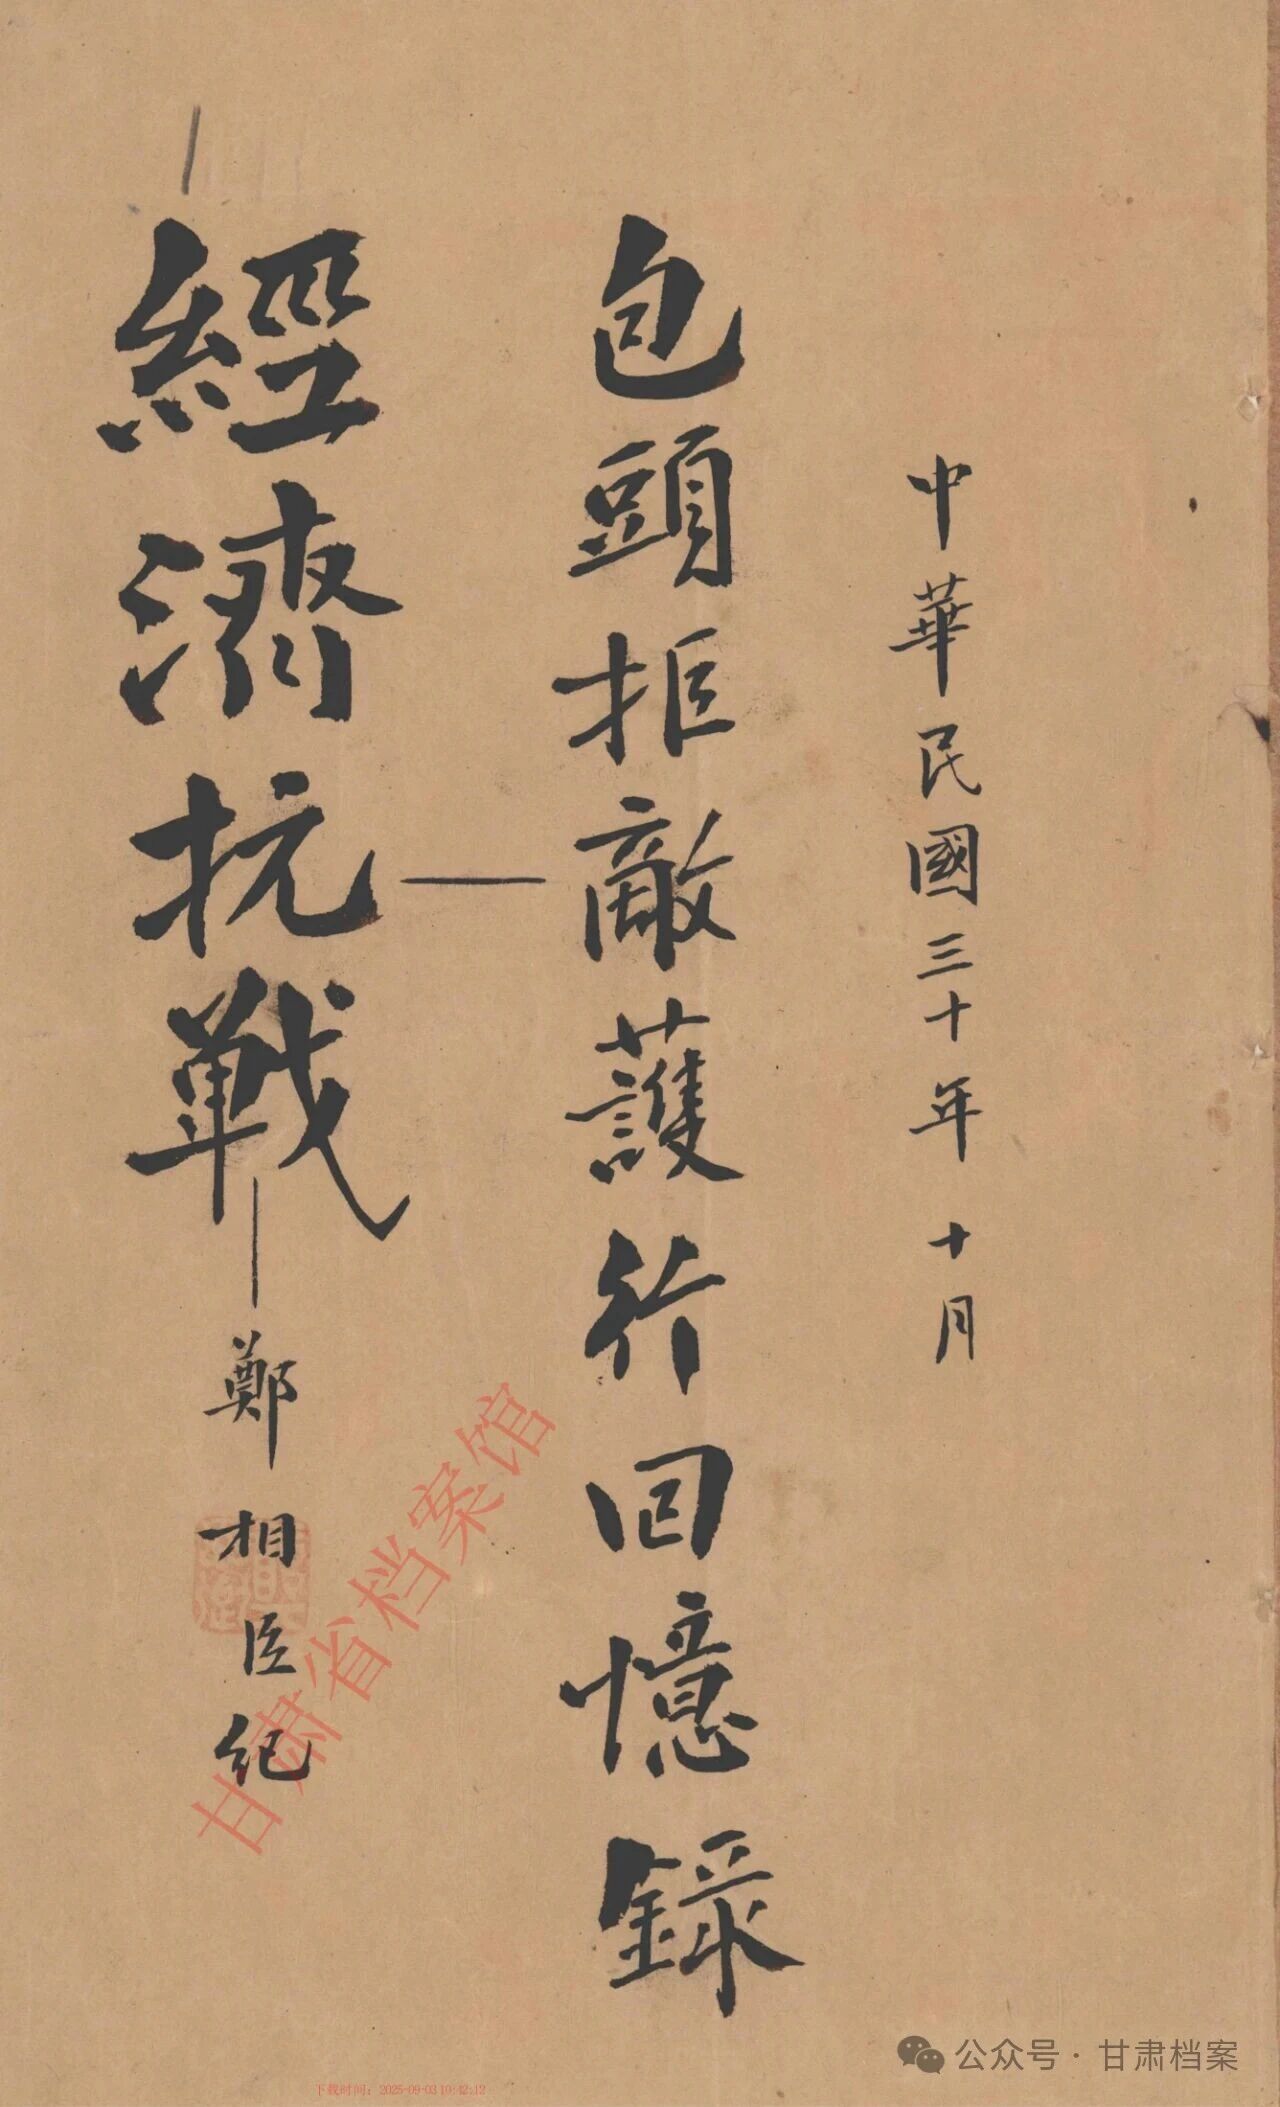 中華民國三十年十月
包頭拒敵護行回憶錄
經濟抗戰——鄭相臣紀
甘肃省档案馆
公众号·甘肃档案
下载时间：2025-09-03 10:42:12